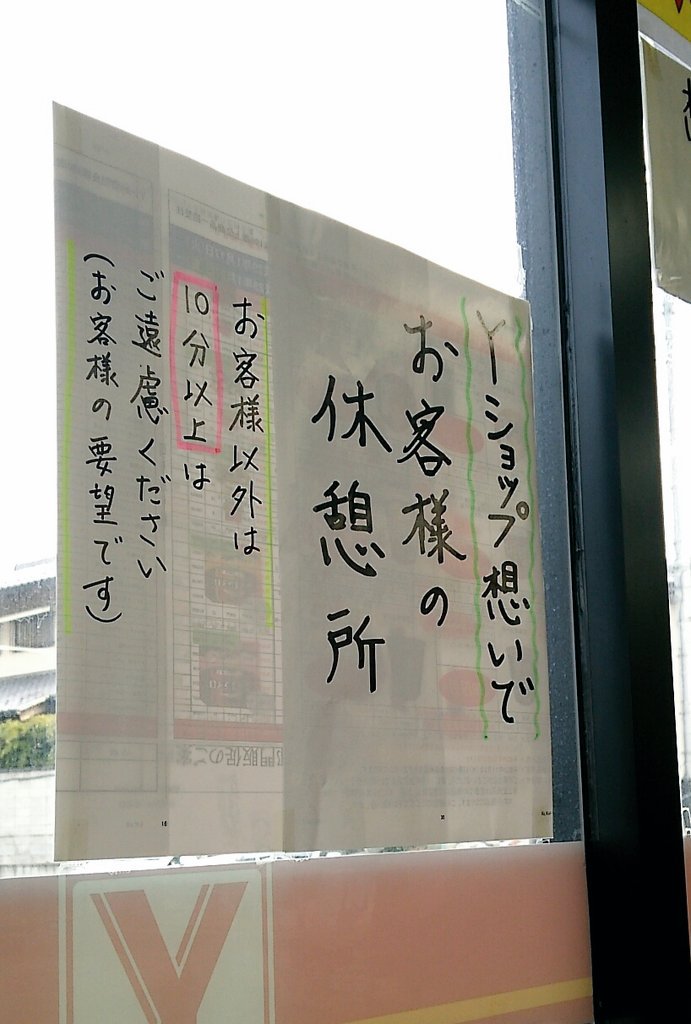 Yショップ想いで
お客様の
休憩所
お客様以外は
10分以上は
ご遠慮ください
(お客様の要望です)
Y